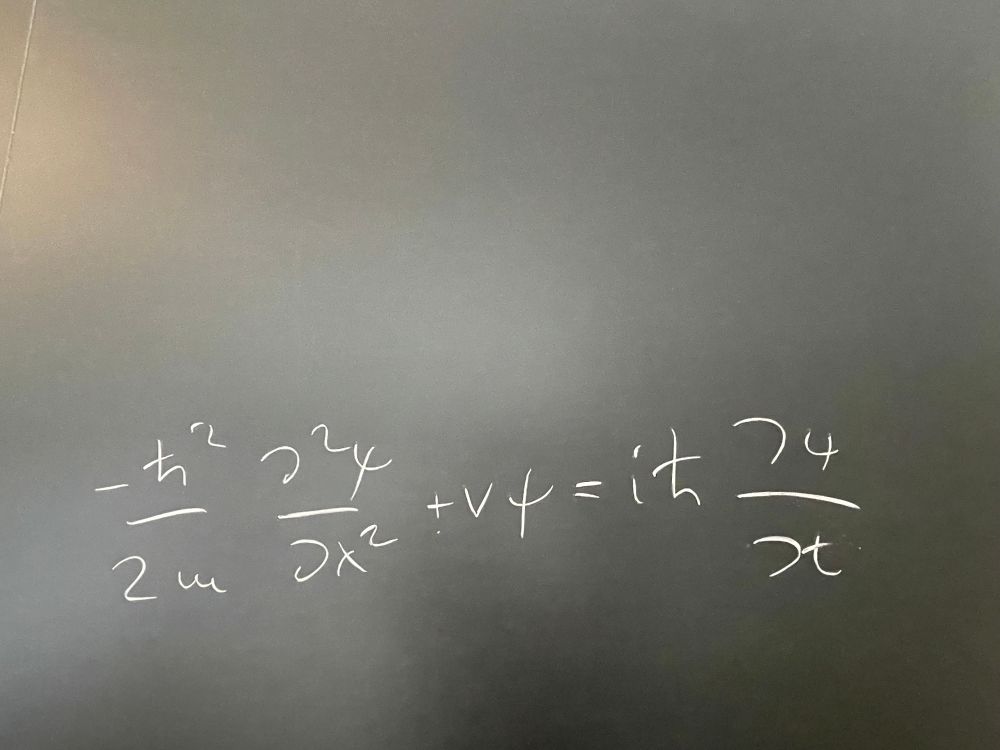 -ħ²/2m ∂²ψ/∂x² + vψ = iħ ∂ψ/∂t